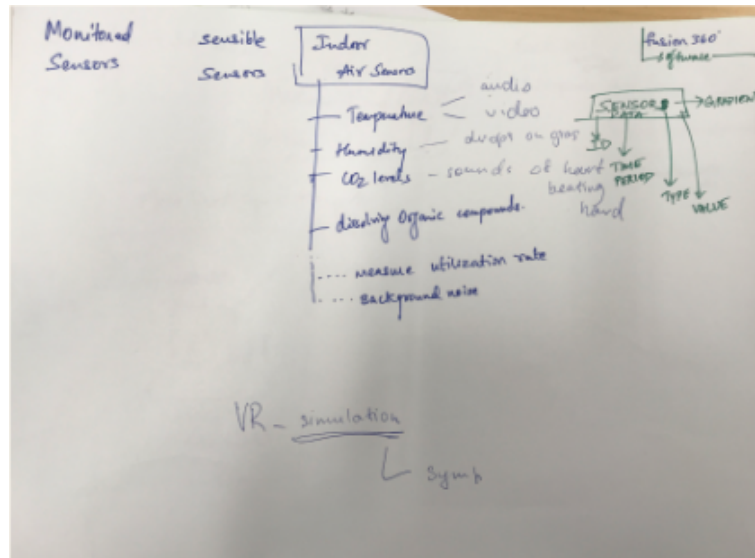 Monitored
Sensors
sensible
Sensors
Indoor
Air Sensors
Temperature
audio
video
Humidity - drops on glass
CO2 levels - sounds of heart
beating
hard
dissolving Organic compounds.
measure utilization rate
background noise
fusion 360°
software
SENSOR
DATA
GRADIENT
ID
TIME
PERIOD
TYPE
VALUE
VR - simulation
Symp